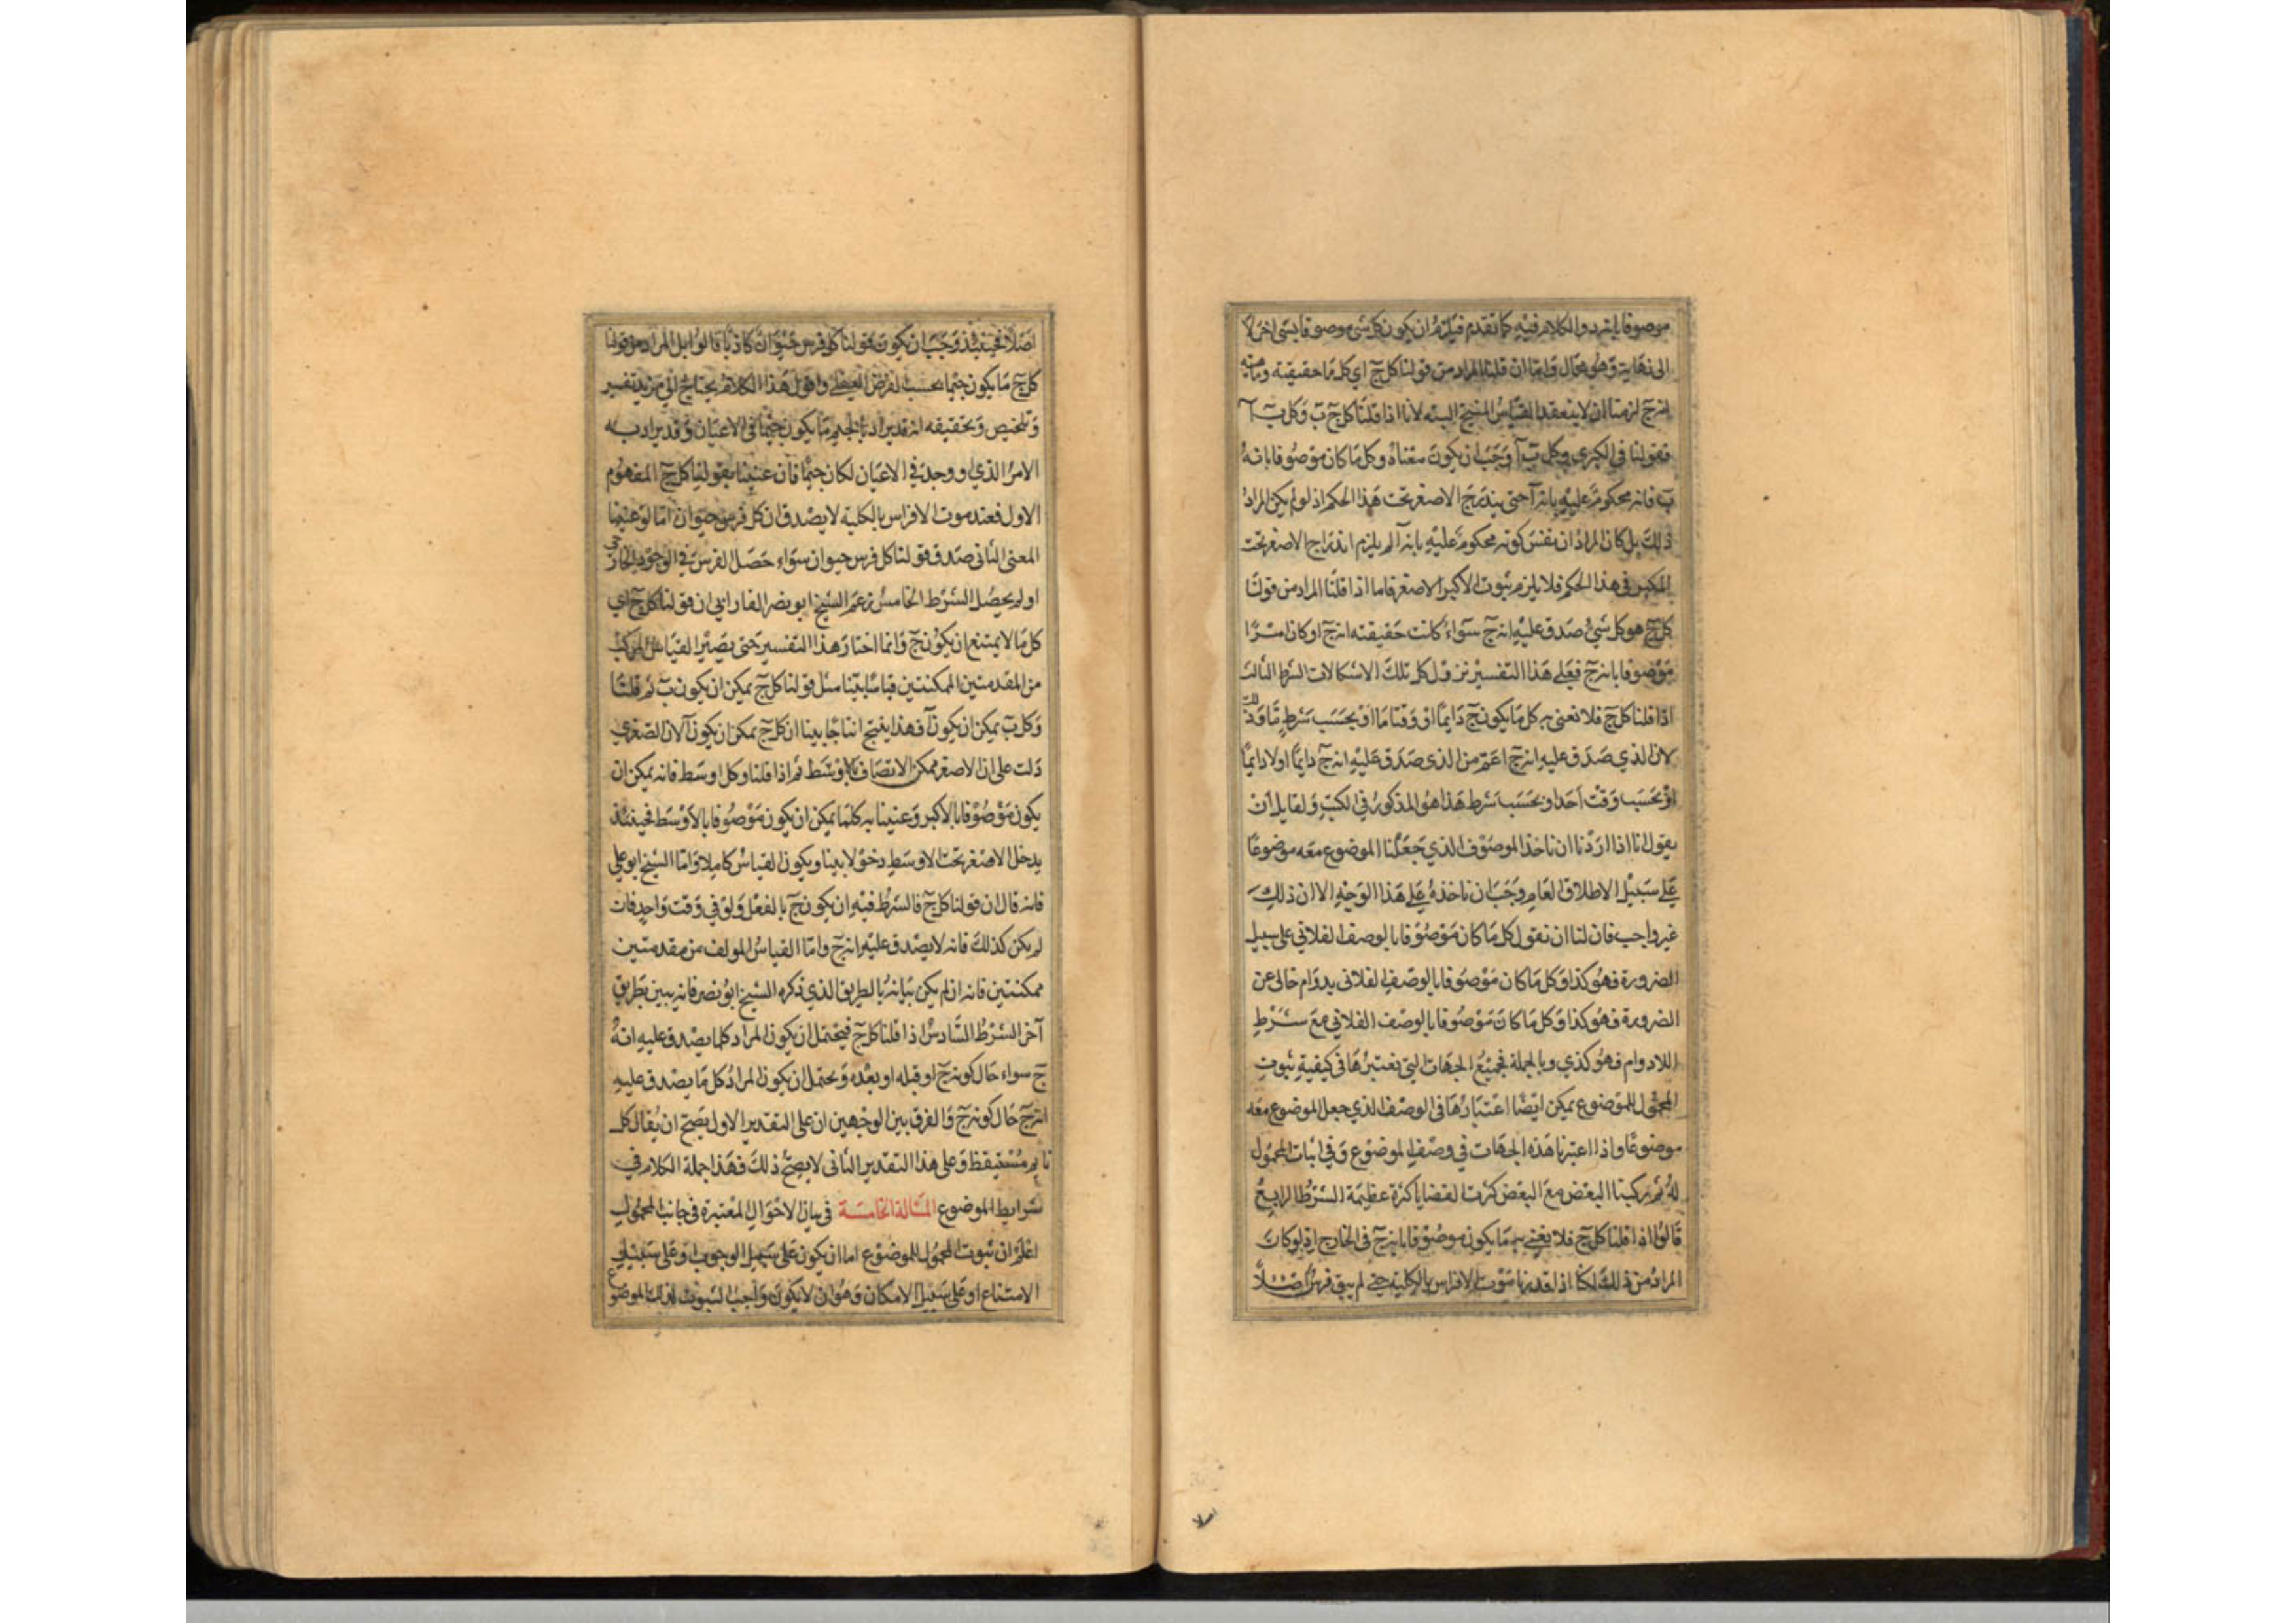 موصوفا بالفرد والكلام فيه كما تقدم فيلزم ان يكون كل شى موصوفا بشى اخر لا
الى نهاية وهو محال واما ان قلنا المراد من قولنا كل ج اى كل ما حقيقته وماهيته
انه ج لزمنا ان لا ينعقد القياس المنتج البته لانا اذا قلنا كل ج ب وكل ب آ
فقولنا فى الكبرى وكل ب آ وجب ان يكون معناه وكل ما كان موصوفا بانه
ب فانه محكوم عليه بانه آ حتى يندرج الاصغر تحت هذا الحكم اذ لو لم يكن المراد
ذلك بل كان المراد ان نفس كونه محكوم عليه بانه آ لم يلزم اندراج الاصغر تحت
فى هذا الحكم فلا يلزم ثبوت الاكبر الاصغر فاما اذا قلنا المراد من قولنا
كل ج هو كل شئ صدق عليه انه ج سواء كانت حقيقته انه ج او كان امرا
موصوفا بانه ج فعلى هذا التفسير تزول كل تلك الاشكالات الشرط الثالث
اذا قلنا كل ج فلا نعنى به كل ما يكون ج دايما او وقتا ما او بحسب شرط ما وذلك
لان الذي صدق عليه انه ج اعم من الذى صدق عليه انه ج دايما او لا دايما
او بحسب وقت احد او بحسب شرط هذا هو المذكور فى الكتب ولقايل ان
يقول انا اذا اردنا ان ناخذ الموصوف الذي جعلنا الموضوع معه موضوعا
على سبيل الاطلاق العام وجب ان ناخذه على هذا الوجه الا ان ذلك
غير واجب فان لنا ان نقول كل ما كان موصوفا بالوصف الفلاني على سبيل
الضرورة فهو كذا وكل ما كان موصوفا بالوصف الفلانى بدوام خالى عن
الضرورة فهو كذا وكل ما كان موصوفا بالوصف الفلاني مع شرط
اللادوام فهو كذي وبالجملة فجميع الجهات التى نعتبرها فى كيفية ثبوت
المحمول للموضوع يمكن ايضا اعتبارها فى الوصف الذي جعل الموضوع معه
موضوعا واذا اعتبرنا هذه الجهات في وصف الموضوع وفى اثبات المحمول
له ثم ركبنا البعض مع البعض كثرت القضايا كثرة عظيمة الشرط الرابع
قالوا اذا قلنا كل ج فلا نعنى به ما يكون موصوفا بانه ج فى الخارج اذ لو كان
المراد من ذلك لكنا اذا قدرنا موت الافراس بالكلية حتى لم يبق فرس اصلا
اصلا
اصلا فحينئذ وجب ان يكون قولنا كل فرس حيوان كاذبا قالوا بل المراد من قولنا
كل ج ما يكون جيما بحسب الفرض العقلى واقول هذا الكلام يحتاج الى مزيد تفسير
وتلخيص وتحقيقه انه قد يراد بالجيم ما يكون جيما فى الاعيان وقد يراد به
الامر الذي لو وجد فى الاعيان لكان جيما فان عنينا بقولنا كل ج المفهوم
الاول فعند موت الافراس بالكلية لا يصدق ان كل فرس حيوان اما لو عنينا
المعنى الثانى صدق قولنا كل فرس حيوان سواء حصل الفرس فى الوجود الخارجى
او لم يحصل الشرط الخامس زعم الشيخ ابو نصر الفارابي ان قولنا كل ج اي
كل ما لا يمتنع ان يكون ج وانما اختار هذا التفسير حتى يصير القياس المركب
من المقدمتين الممكنتين قياسا بينا مثل قولنا كل ج يمكن ان يكون ب ثم قلنا
وكل ب يمكن ان يكون آ فهذا ينتج انتاجا بينا ان كل ج يمكن ان يكون آ لان الصغرى
دلت على ان الاصغر ممكن الاتصاف بالاوسط ثم اذا قلنا وكل اوسط فانه يمكن ان
يكون موصوفا بالاكبر وعنينا به كلما يمكن ان يكون موصوفا بالاوسط فحينئذ
يدخل الاصغر تحت الاوسط دخولا بينا ويكون القياس كاملا واما الشيخ ابو على
فانه قال ان قولنا كل ج فالشرط فيه ان يكون ج بالفعل ولو في وقت واحد فان
لم يكن كذلك فانه لا يصدق عليه انه ج واما القياس المولف من مقدمتين
ممكنتين فانه ان لم يكن بيانه بالطريق الذي ذكره الشيخ ابو نصر فانه يبين بطريق
آخر الشرط السادس اذا قلنا كل ج فيحتمل ان يكون المراد كلما يصدق عليه انه
ج سواء حال كونه ج او قبله او بعده ويحتمل ان يكون المراد كل ما يصدق عليه
انه ج حال كونه ج والفرق بين الوجهين ان على التقدير الاول يصح ان يقال كل
نايم مستيقظ وعلى هذا التقدير الثانى لا يصح ذلك فهذا جملة الكلام في
شرايط الموضوع المسالة الخامسة فى بيان الاحوال المعتبرة فى جانب المحمول
اعلم ان ثبوت المحمول للموضوع اما ان يكون على سبيل الوجوب او على سبيل
الامتناع او على سبيل الامكان وهو ان لا يكون واجب الثبوت لذلك الموضوع